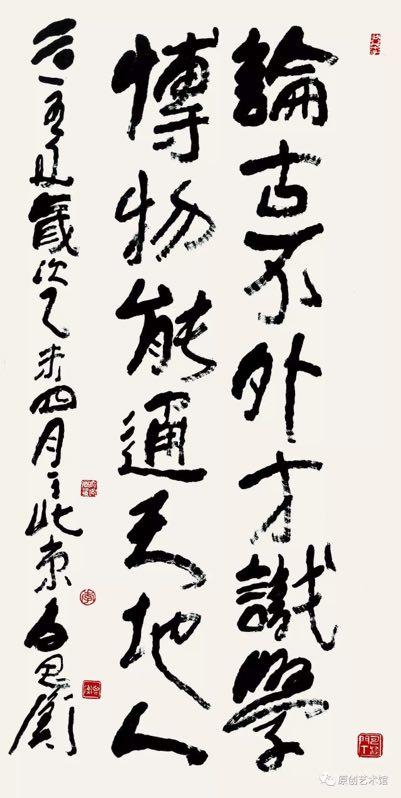 論古不外才識學
博物能通天地人
二〇一五年歲次乙未四月于北京
原创艺术馆